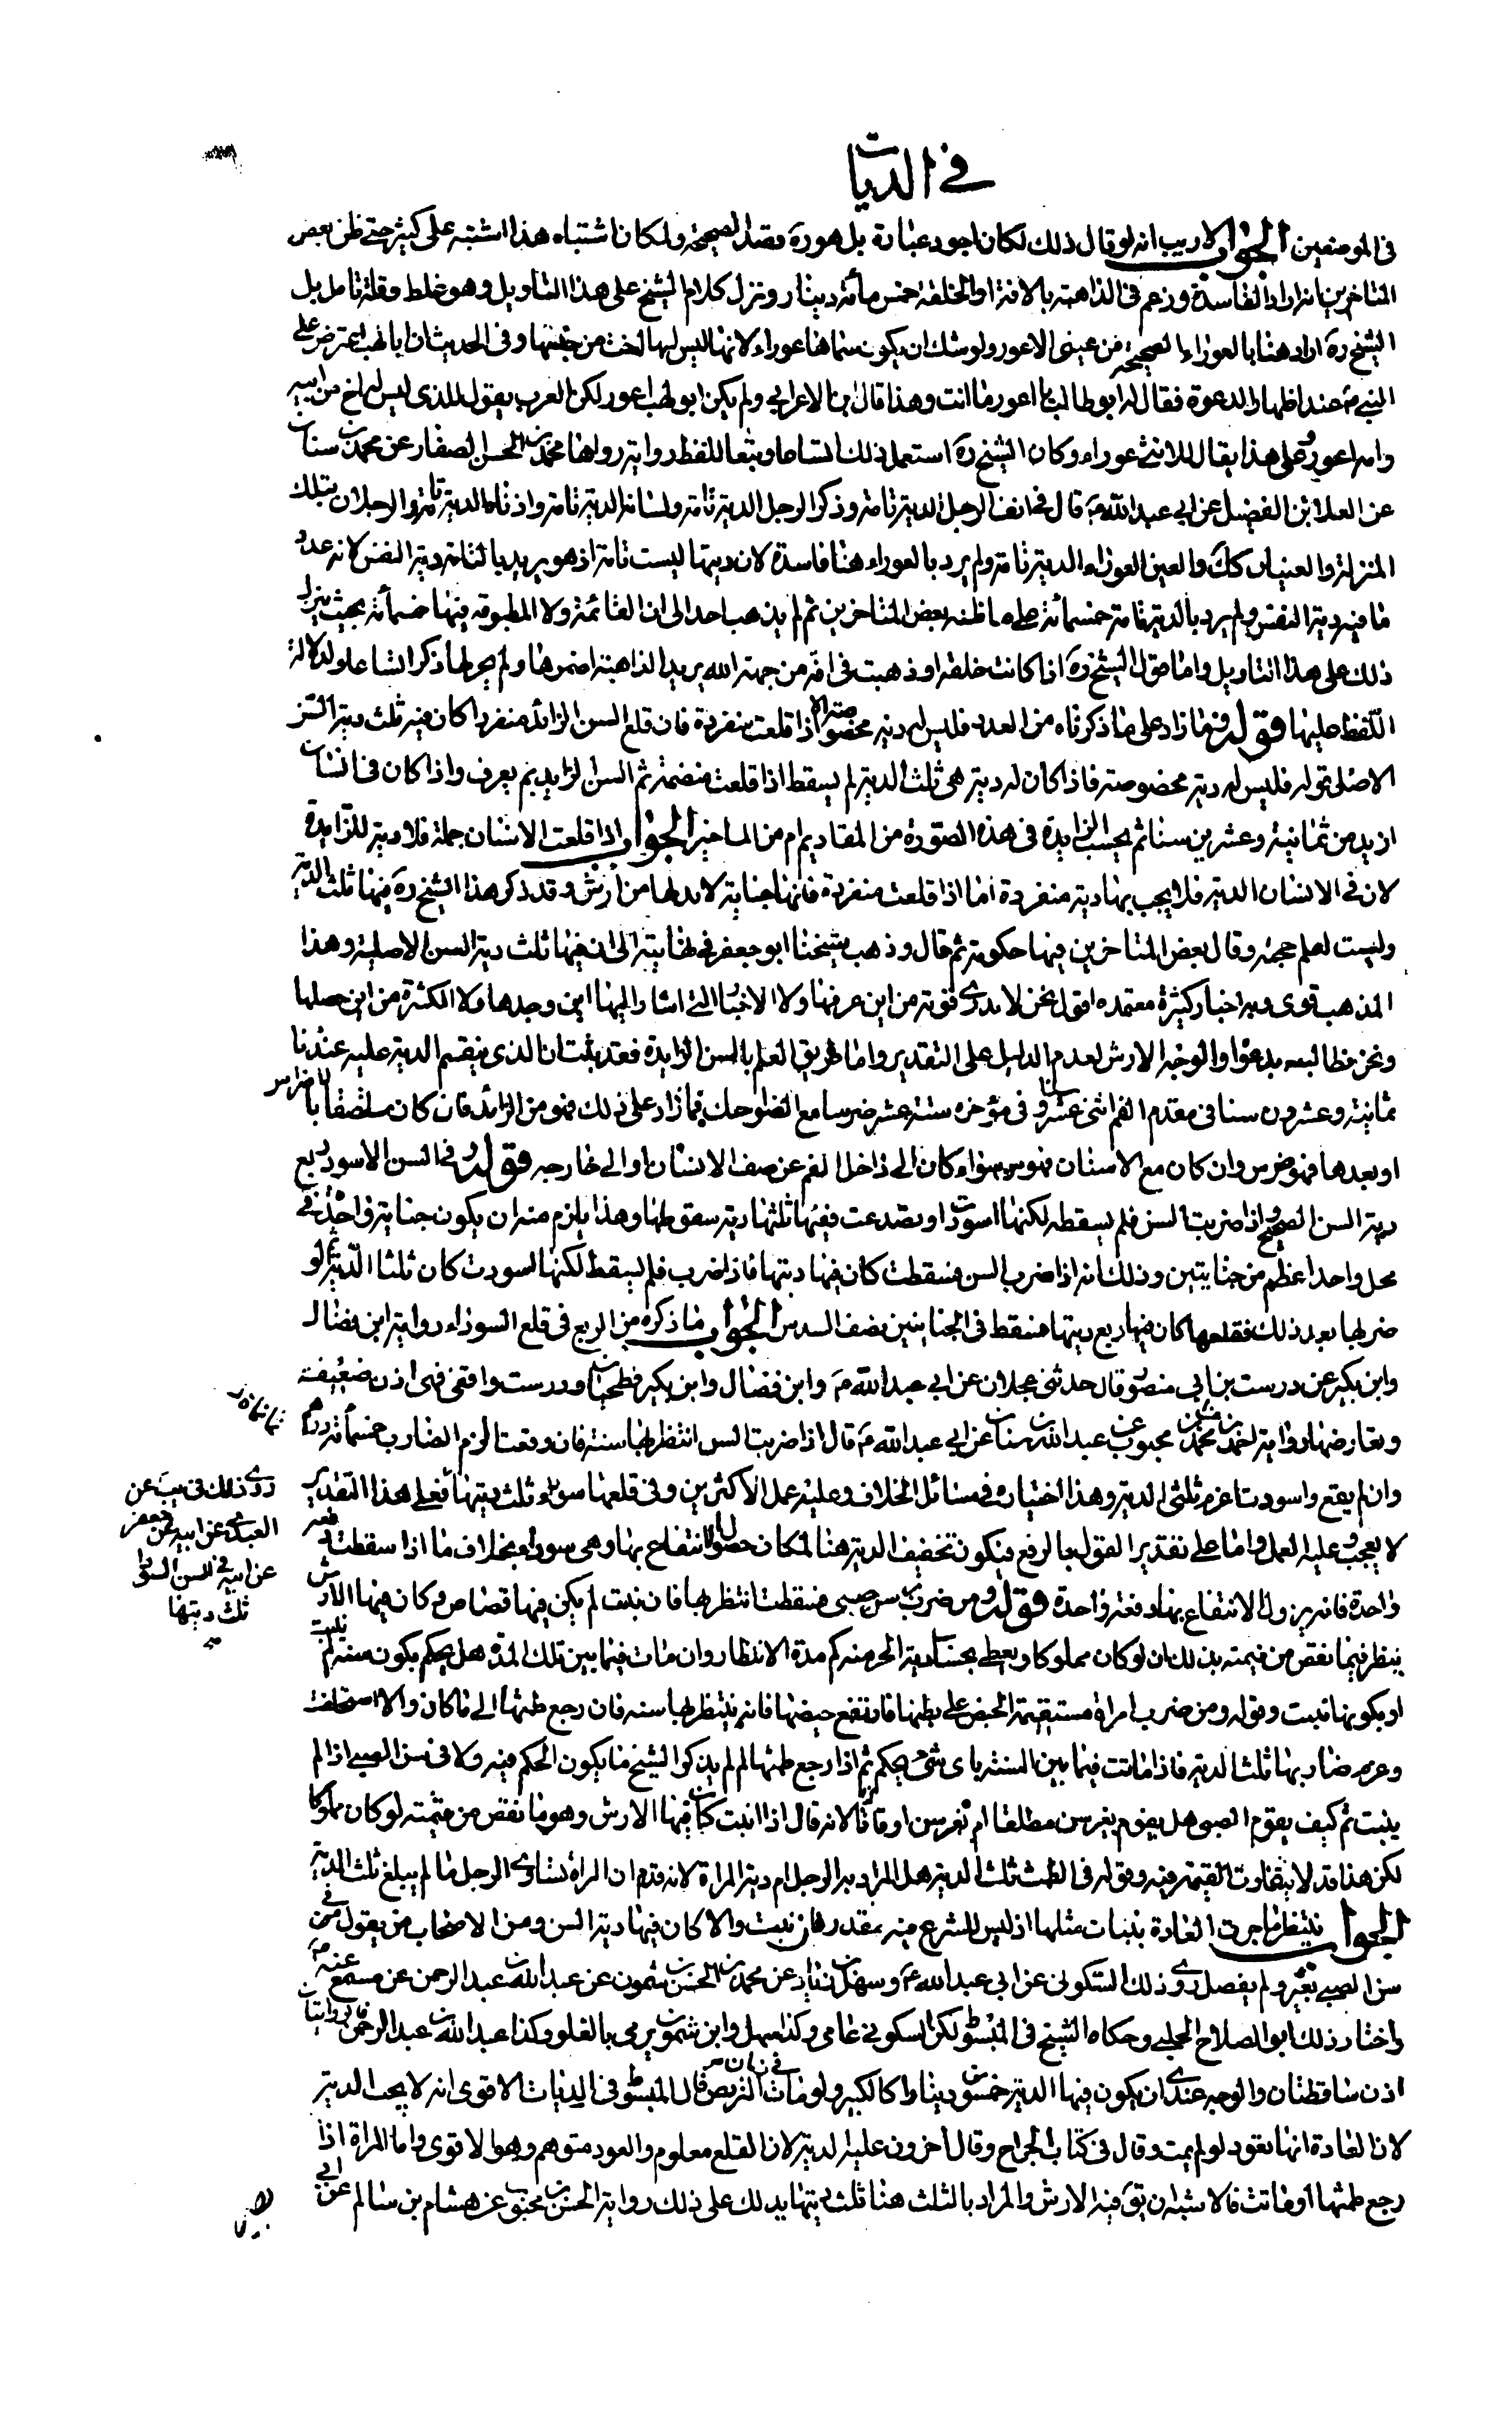 في الديات
في الموضعين الجواب لا ريب انه لو قال ذلك لكان اجود عبارة بل هو ره قصد الصحيحة ولمكان اشتباه هذا اشتبه على كثير حتى ظن بعض
المتاخرين انه اراد الفاسدة وزعم في الذاهبة بالافة او الخلقة خمس مأئة دينار ونزل كلام الشيخ على هذا التاويل وهو غلط وقلة تامل بل
الشيخ ره اراد هنا بالعوراء الصحيحة من عيني الاعور ولو شك ان يكون سماها عوراء لانها ليس لها اخت من جنسها وفي الحديث ان ابا لهب اعترض على
النبي ص عند اظهار الدعوة فقال له ابو طالب يا اعور ما انت وهذا قال ابن الاعرابي ولم يكن ابو لهب اعور لكن العرب يقول للذي ليس له اخ من ابيه
وامه اعور وعلى هذا يقال للانثى عوراء وكان الشيخ ره استعمل ذلك تسامحا وتبعا للفظ رواية رواها محمد بن الحسن الصفار عن محمد بن سنان
عن العلا بن الفضيل عن ابي عبد الله ع قال في انف الرجل الدية تامة وذكر الرجل الدية تامة ولسانه الدية تامة واذناه الدية تامة والرجلان بتلك
المنزلة والعينان كك والعين العوراء الدية تامة ولم يرد بالعوراء هنا فاسدة لان ديتها ليست تامة اذ هو يريد بالتامة دية النفس لانه عدد
ما فيه دية النفس ولم يرد بالدية تامة خمسمأئة على ما ظنه بعض المتاخرين ثم لم يذهب احد الى ان القائمة ولا المطبوقة فيها خمسمأئة بحيث ينزل
ذلك على هذا التاويل واما قول الشيخ ره اذا كانت خلقة او ذهبت في افة من جهة الله يريد الذاهبة اضمرها ولم يجر لها ذكر اتساعا ولدلالة
اللفظ عليها قوله فما زاد على ما ذكرناه من العدد فليس له دية مخصوصة الا اذا قلعت منفردة فان قلع السن الزائد منفردا كان فيه ثلث دية السن
الاصلي قوله فليس له دية مخصوصة فاذا كان له دية هي ثلث الدية لم يسقط اذا قلعت منضمة ثم السن الزايد بم يعرف واذا كان في انسان
ازيد من ثمانية وعشرين سنا ثم يحسب الزايدة في هذه الصورة من المقاديم ام من المآخير الجواب اذا قلعت الاسنان جملة فلا دية للزايدة
لان في الاسنان الدية فلا يجب بها دية منفردة اما اذا قلعت منفردة فانها جناية لا بد لها من ارش وقد ذكر هذا الشيخ ره فيها ثلث الدية
وليست لعلم حجة وقال بعض المتاخرين فيها حكومة ثم قال وذهب شيخنا ابو جعفر في نهايته الى ان فيها ثلث دية السن الاصلية وهذا
المذهب قوى وبه اخبار كثيرة معتمده اقول نحن لا ندري قوته من اين عرفها ولا الاخبار التي اشار اليها اين وجدها ولا الكثرة من اين حصلها
ونحن نطالبه بدعواه والوجه الارش لعدم الدليل على التقدير واما طريق العلم بالسن الزايدة فقد بينت ان الذي ينقسم الدية عليه عندنا
ثمانية وعشرون سنا في مقدم الفم اثنى عشر سنا وفي مؤخره ستة عشر ضرسا مع الضواحك فما زاد على ذلك فهو من الزائد فان كان ملتصقا بالاضراس
او بعدها فهو ضرس وان كان مع الاسنان فهو سن سواء كان الى داخل الفم عن صف الاسنان او الى خارجه قوله وفي السن الاسود ربع
دية السن الصحيح واذا ضربت السن فلم يسقط لكنها اسودت او تصدعت ففيها ثلثا دية سقوطها وهذا يلزم منه ان يكون جناية واحدة في
محل واحد اعظم من جنايتين وذلك انه اذا ضرب السن فسقطت كان فيها ديتها فاذا ضرب فلم يسقط لكنها اسودت كان ثلثا الدية ثم لو
ضربها بعد ذلك فقلعها كان فيها ربع ديتها فسقط في الجنايتين نصف السدس الجواب ما ذكره من الربع في قلع السوداء رواية ابن فضال
وابن بكير عن درست بن ابي منصور قال حدثني عجلان عن ابي عبد الله ع وابن فضال وابن بكير فطحيان ودرست واقفي فهي اذن ضعيفة
وتعارضها رواية احمد بن محمد عن محبوب عن عبد الله بن سنان عن ابي عبد الله ع قال اذا ضربت السن انتظر بها سنة فان وقعت الزم الضارب خمسمائة درهم
وان لم يقع واسودت اغرم ثلثي الدية وهذا اختياره في مسائل الخلاف وعليه عمل الاكثرين وفي قلعها سوداء ثلث ديتها فعلى هذا التقدير
لا يعجب وعليه العمل واما على تقدير القول بالربع فيكون تخفيف الدية هنا لمكان حصول الانتفاع بها وهي سوداء بخلاف ما اذا سقطت دفعة
واحدة فانه يزول الانتفاع بها دفعة واحدة قوله ومن ضرب سن صبي فسقطت انتظر بها فان نبتت لم يكن فيها قصاص وكان فيها الارش
ينظر فيما نقص من قيمته بذلك ان لو كان مملوكا ويعطى بحساب دية الحر منه كم مدة الانتظار وان مات فيما بين تلك المدة هل يحكم بكون سنه لم تنبت
او بكونها نبتت وقوله ومن ضرب امراة مستقيمة الحيض على بطنها فارتفع حيضها فانه ينتظر بها سنه فان رجع طمثها الى ما كان والا استحلفت
وغرم ضاربها ثلث الدية فاذا ماتت فيما بين السنة باى شئ يحكم ثم اذا رجع طمثها لم لم يذكر الشيخ ما يكون الحكم فيه ولا في سن الصبي اذا لم
ينبت ثم كيف يقوم الصبي هل يقوم بغير سن مطلقا ام بغير سن اوقاتا لانه قال اذا انبت كان فيها الارش وهو ما نقص من قيمته لو كان مملوكا
لكن هذا قد لا يتفاوت القيمة فيه وقوله في الطمث ثلث الدية هل المراد به الرجل ام دية المراة لانه قدم ان المراة تساوى الرجل ما لم يبلغ ثلث الدية
الجواب ينتظر ما جرت العادة بنبات مثلها اذ ليس للشرع فيه مقدر فان نبت والا كان فيها دية السن ومن الاصحاب من يقول في
سن الصبي بعير ولم يفصل روى ذلك السكوني عن ابي عبد الله ع وسهل بن زياد عن محمد بن الحسن بن شمون عن عبد الله بن عبد الرحمن عن مسمع عنه ع
واختار ذلك ابو الصلاح الحلبي وحكاه الشيخ في المبسوط لكن السكوني عامي وكذا سهل وابن شمون يرمى بالغلو وكذا عبد الله بن عبد الرحمن فالروايتان
اذن ساقطتان والوجه عندي ان يكون فيها الدية خمسون دينارا كالكبير ولو مات في زمان التربص قال في المبسوط في الديات الاقوى انه لا يجب الدية
لان العادة انها تعود لو لم يمت وقال في كتاب الجراح وقال اخرون عليه الدية لان القلع معلوم والعود متوهم وهو الاقوى واما المراة اذا
رجع طمثها او ماتت فالاشبه ان يق فيه الارش والمراد بالثلث هنا ثلث ديتها يدلك على ذلك رواية الحسن بن محبوب عن هشام بن سالم عن ابي
روى ذلك في يب عن
العبدي عن ابيه عن جعفر
عن ابيه في السن السوداء
ثلث ديتها